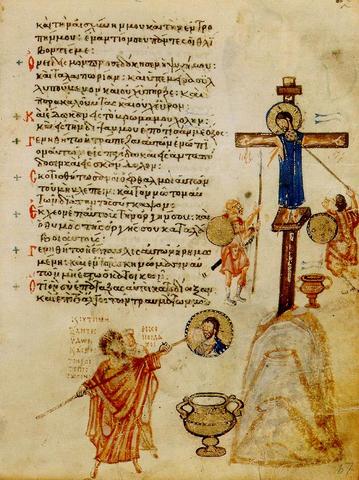 καὶ τὴν αἰσχύνην μου καὶ τὴν ἐντρο
πήν μου· ἐναντίον σου πάντες οἱ θλί
βοντές με·
Ὀνειδισμὸν προσεδόκησεν ἡ ψυχή μου·
καὶ ταλαιπωρίαν· καὶ ὑπέμεινα συλ
λυπούμενον καὶ οὐχ ὑπῆρξε· καὶ
παρακαλοῦντας καὶ οὐχ εὗρον·
Καὶ ἔδωκαν εἰς τὸ βρῶμά μου χολήν·
καὶ εἰς τὴν δίψαν μου ἐπότισάν με ὄξος
Γενηθήτω ἡ τράπεζα αὐτῶν ἐνώπι
ον αὐτῶν εἰς παγίδα καὶ εἰς ἀνταπό
δοσιν καὶ εἰς σκάνδαλον·
Σκοτισθήτωσαν οἱ ὀφθαλμοὶ αὐτῶν
τοῦ μὴ βλέπειν· καὶ τὸν νῶτον αὐ
τῶν διὰ παντὸς σύγκαμψον·
Ἔκχεον ἐπ' αὐτοὺς τὴν ὀργήν σου· καὶ
ὁ θυμὸς τῆς ὀργῆς σου καταλά
βοι αὐτούς·
Γενηθήτω ἡ ἔπαυλις αὐτῶν ἠρημω
μένη· καὶ ἐν τοῖς σκηνώμασιν αὐ
τῶν μὴ ἔστω ὁ κατοικῶν·
Ὅτι ὃν σὺ ἐπάταξας αὐτοὶ κατεδίωξαν
καὶ ἐπὶ τὸ ἄλγος τῶν τραυμάτων μου